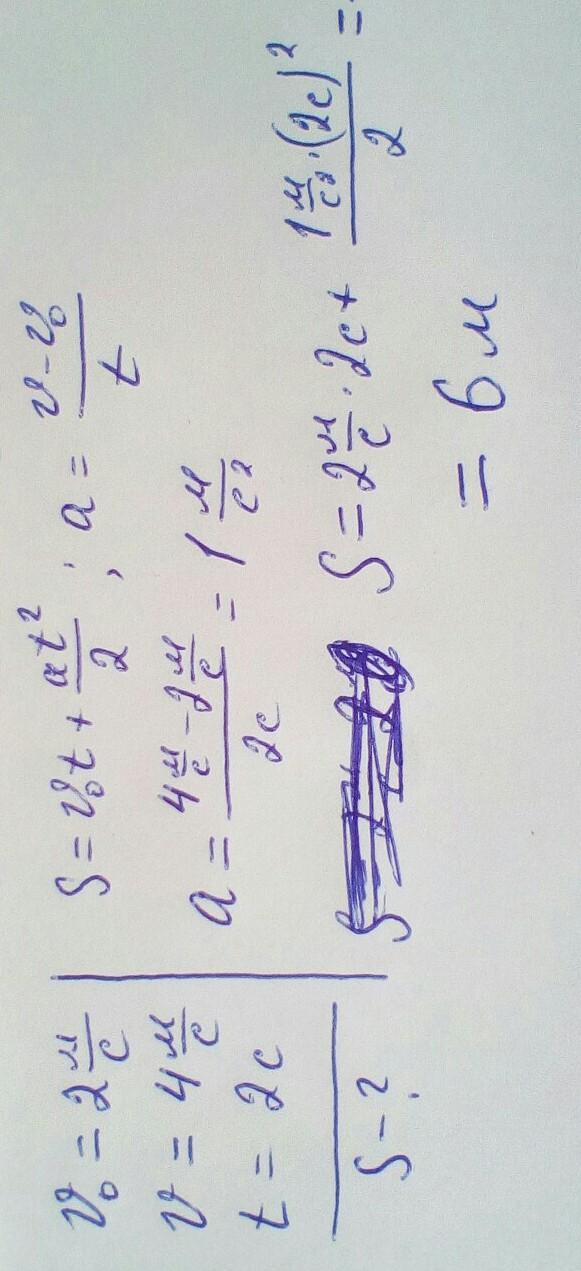 v₀ = 2 м/с
v = 4 м/с
t = 2с
S - ?
S = v₀t + at²/2 ; a = (v - v₀)/t
a = (4 м/с - 2 м/с)/2с = 1 м/с²
S = 2 м/с · 2с + (1 м/с² · (2с)²)/2 =
= 6 м